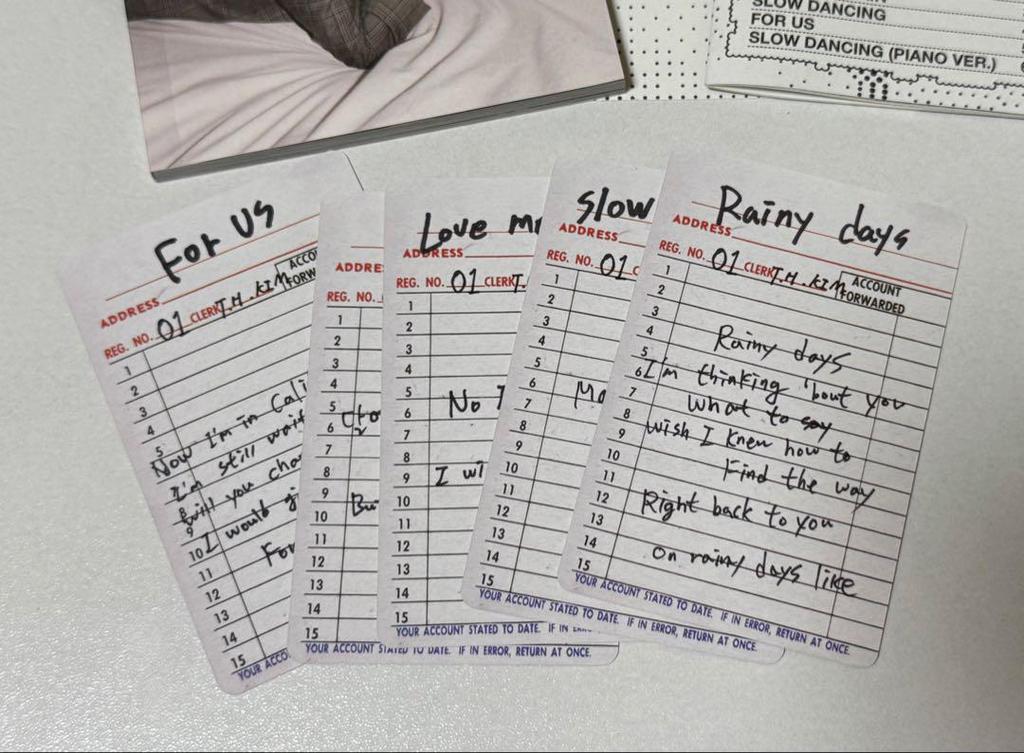 SLOW DANCING
FOR US
SLOW DANCING (PIANO VER.)
For US
ADDRESS
REG. NO. 01 CLERK T.H.KIM
FORW
1
2
3
4
5
Now I'm in Cali
I'm still wait
8
will you cha
9
10 I would gi
11
For
12
13
14
15
YOUR ACCO
ADDRESS
REG. NO.
1
2
3
4
5
6
7
8
9
10
11
12
13
14
15
YOUR ACCOUNT STATED TO DATE. IF IN ERROR, RETURN AT ONCE.
Love m
ADDRESS
REG. NO. 01 CLERK T.
1
2
3
4
5
6 No
7
8
9 I wi
10
11
12
13
14
15
YOUR ACCOUNT STATED TO DATE. IF IN
slow
ADDRESS
REG. NO. 01 C
1
2
3
4
5
6
7
8
9
10
11
12
13
14
15
YOUR ACCOUNT STATED TO DATE. IF IN ERROR, RETURN AT ONCE.
Rainy days
ADDRESS
REG. NO. 01 CLERK T.H.KIM ACCOUNT FORWARDED
1
2
3
4 Rainy days
5
6 I'm thinking 'bout you
7 What to say
8
9 wish I knew how to
10 Find the way
11
12 Right back to you
13
14 on rainy days like
15
YOUR ACCOUNT STATED TO DATE. IF IN ERROR, RETURN AT ONCE.